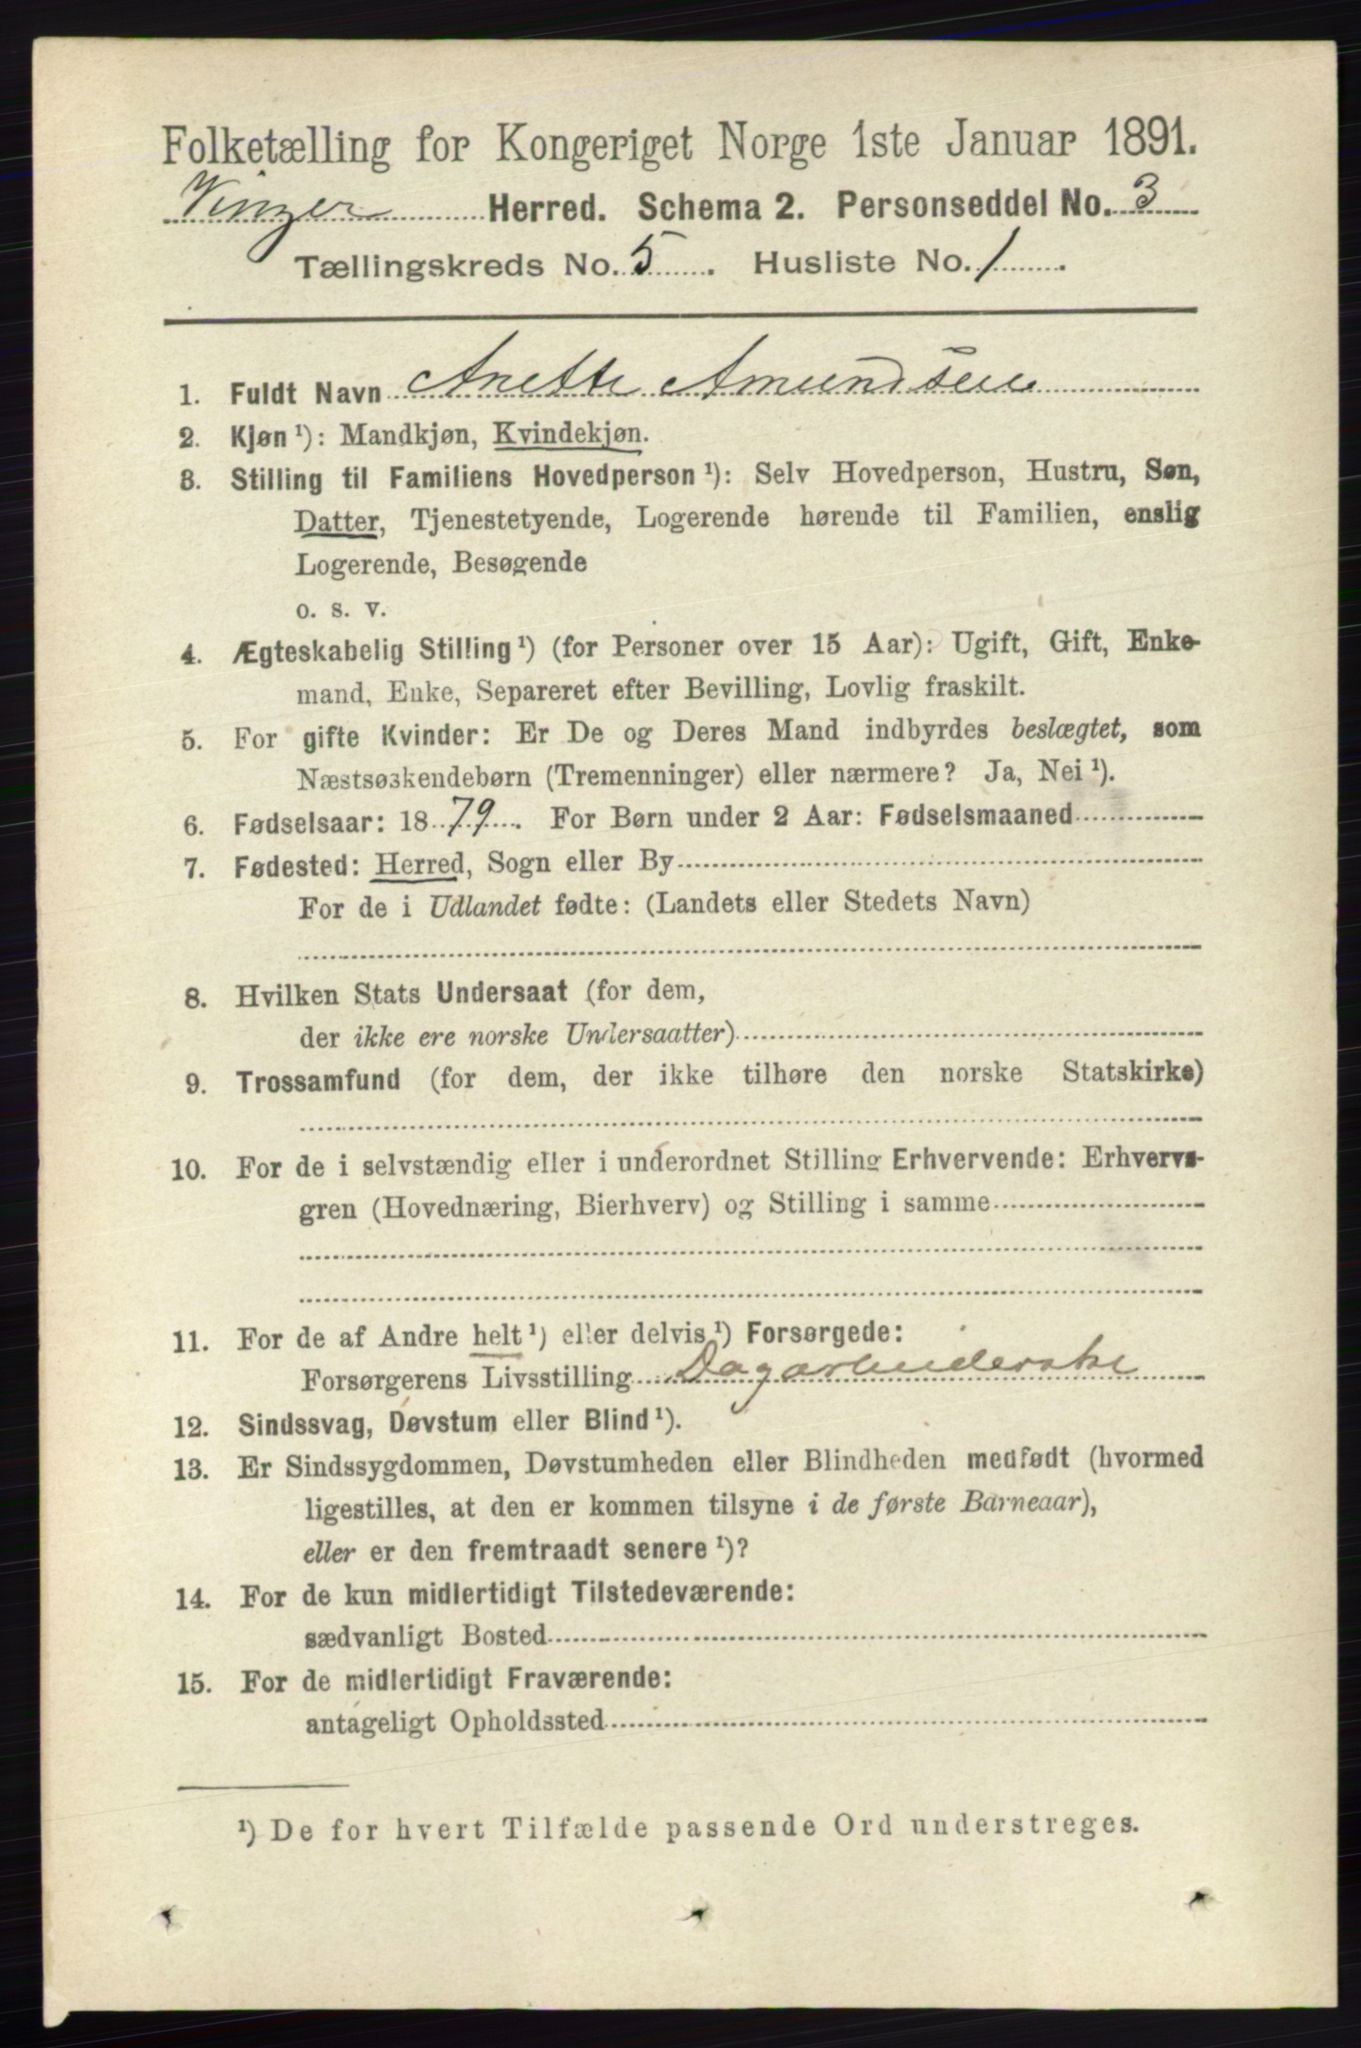 Folketælling for Kongeriget Norge 1ste Januar 1891.
Vinger Herred. Schema 2. Personseddel No. 3
Tællingskreds No. 5. Husliste No. 1.
1. Fuldt Navn Anette Amundsen
2. Kjøn ¹): Mandkjøn, Kvindekjøn.
3. Stilling til Familiens Hovedperson ¹): Selv Hovedperson, Hustru, Søn,
Datter, Tjenestetyende, Logerende hørende til Familien, enslig
Logerende, Besøgende
o. s. v.
4. Ægteskabelig Stilling ¹) (for Personer over 15 Aar): Ugift, Gift, Enke-
mand, Enke, Separeret efter Bevilling, Lovlig fraskilt.
5. For gifte Kvinder: Er De og Deres Mand indbyrdes beslægtet, som
Næstsøskendebørn (Tremenninger) eller nærmere? Ja, Nei ¹).
6. Fødselsaar: 1879. For Børn under 2 Aar: Fødselsmaaned
7. Fødested: Herred, Sogn eller By
For de i Udlandet fødte: (Landets eller Stedets Navn)
8. Hvilken Stats Undersaat (for dem,
der ikke ere norske Undersaatter)
9. Trossamfund (for dem, der ikke tilhøre den norske Statskirke)
10. For de i selvstændig eller i underordnet Stilling Erhvervende: Erhvervs-
gren (Hovednæring, Bierhverv) og Stilling i samme
11. For de af Andre helt ¹) eller delvis ¹) Forsørgede:
Forsørgerens Livsstilling Dagarbeiderske
12. Sindssvag, Døvstum eller Blind ¹).
13. Er Sindssygdommen, Døvstumheden eller Blindheden medfødt (hvormed
ligestilles, at den er kommen tilsyne i de første Barneaar),
eller er den fremtraadt senere ¹)?
14. For de kun midlertidigt Tilstedeværende:
sædvanligt Bosted
15. For de midlertidigt Fraværende:
antageligt Opholdssted
¹) De for hvert Tilfælde passende Ord understreges.